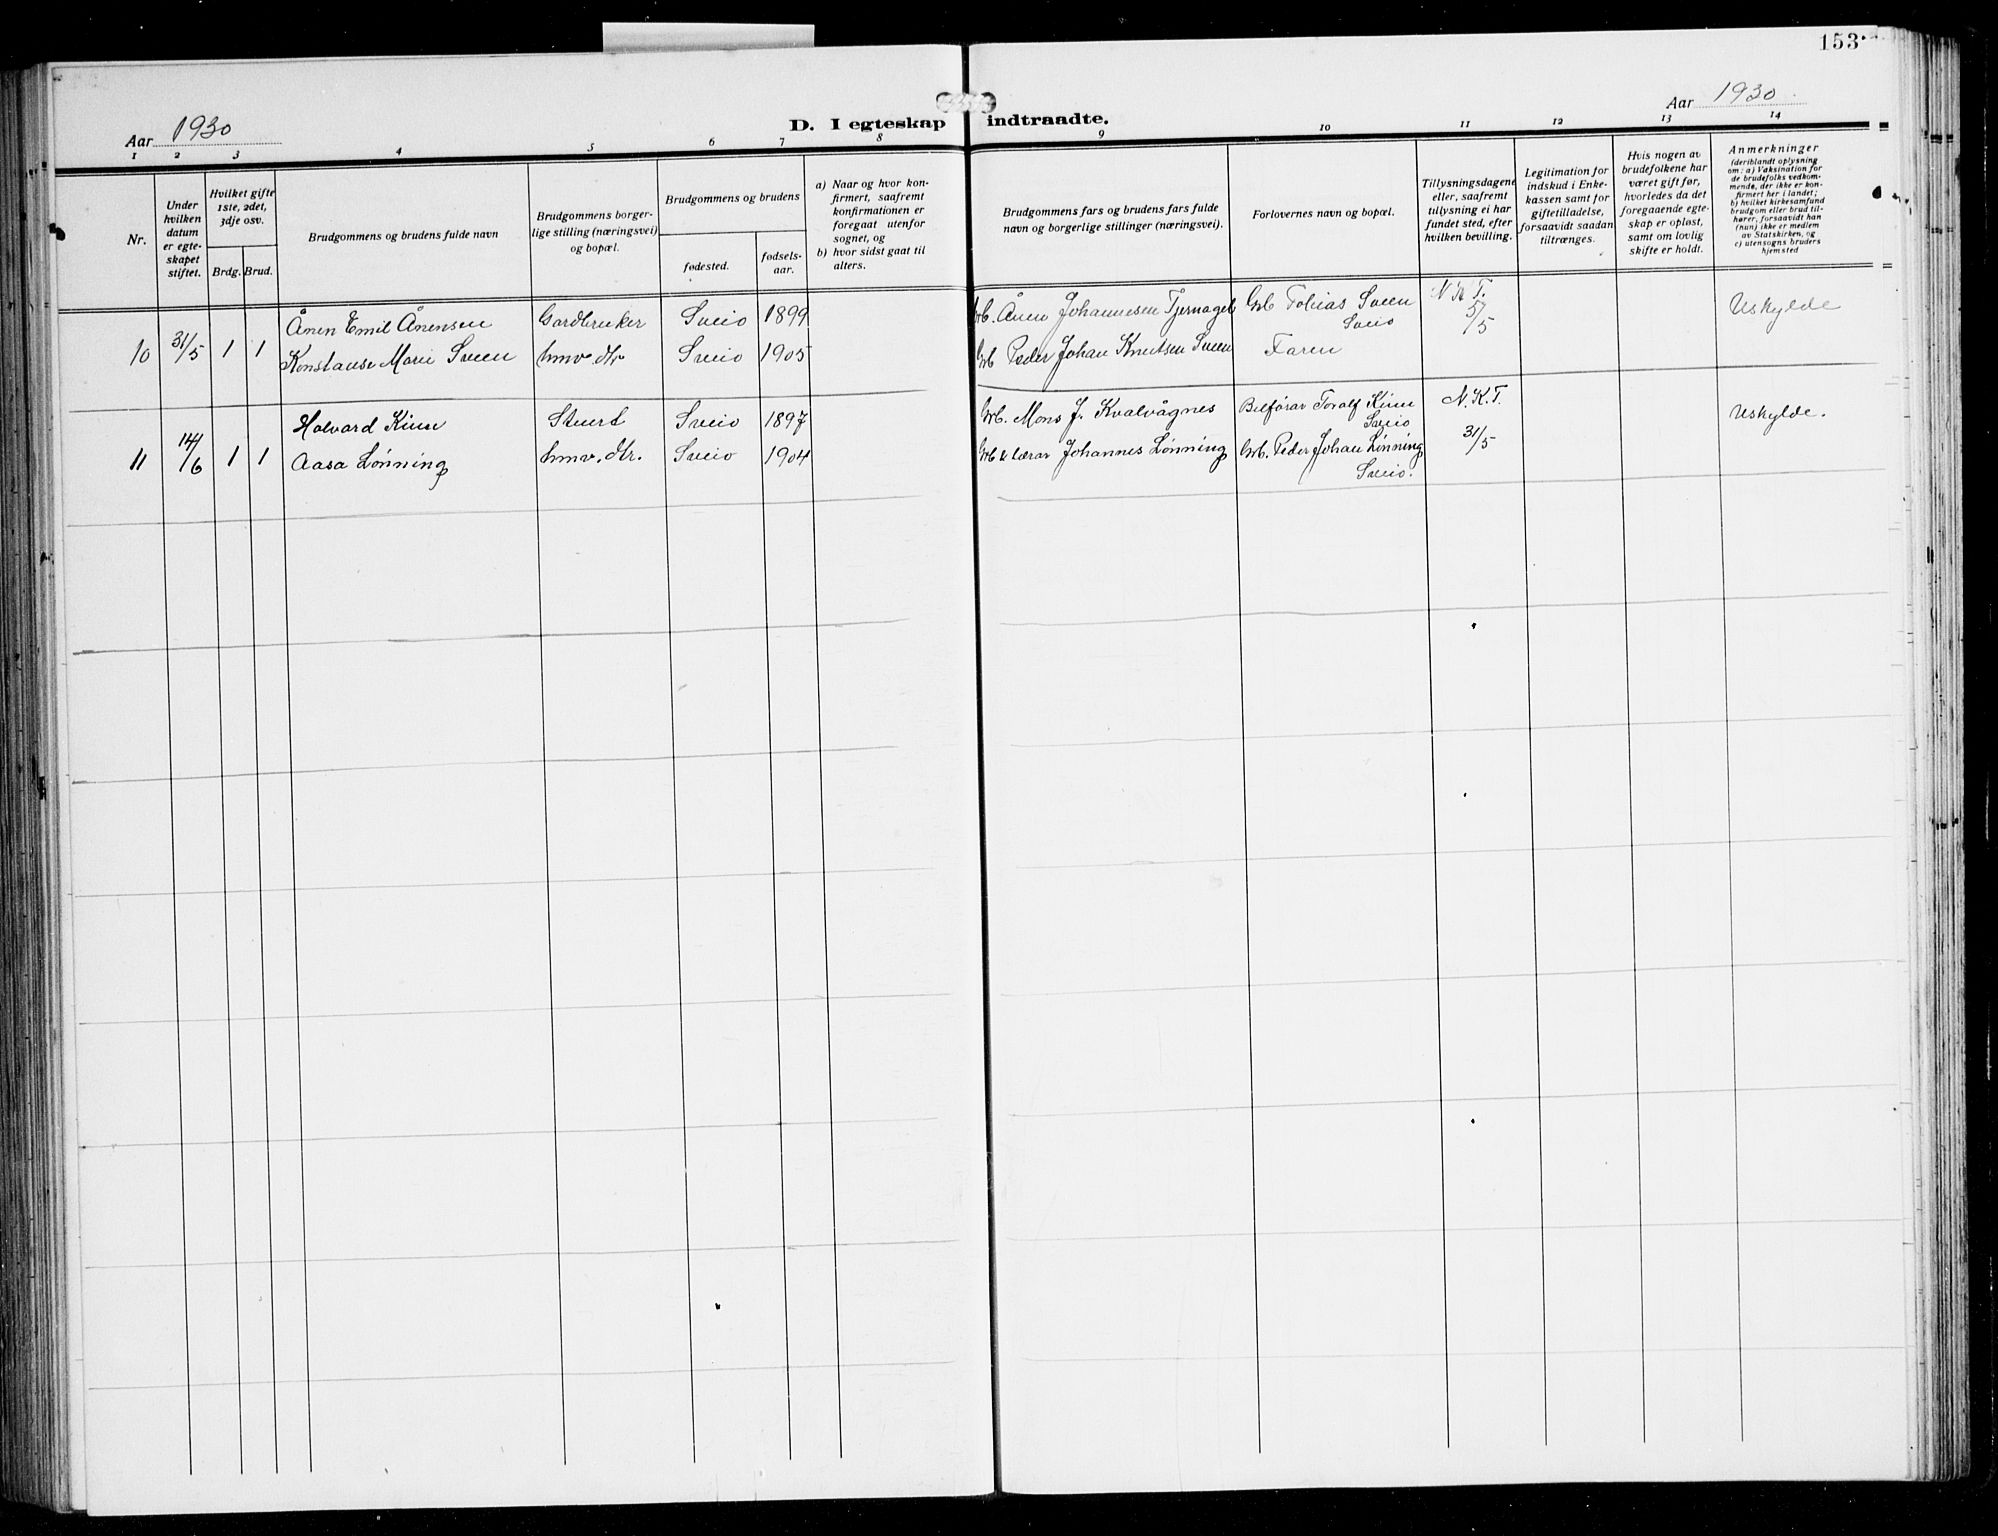 153
Aar 1930
D. I egteskap indtraadte.
Aar 1930
1 2 3 4 5 6 7 8 9 10 11 12 13 14
Nr.
Under hvilken datum er egteskapet stiftet.
Hvilket gifte 1ste, 2det, 3dje osv.
Brdg. Brud.
Brudgommens og brudens fulde navn
Brudgommens borgerlige stilling (næringsvei) og bopæl.
Brudgommens og brudens
fødested.
fødselsaar.
a) Naar og hvor konfirmert, saafremt konfirmationen er foregaat utenfor sognet, og
b) hvor sidst gaat til alters.
Brudgommens fars og brudens fars fulde navn og borgerlige stillinger (næringsvei).
Forlovernes navn og bopæl.
Tillysningsdagene eller, saafremt tillysning ei har fundet sted, efter hvilken bevilling.
Legitimation for indskud i Enkekassen samt for giftetilladelse, forsaavidt saadan tiltrænges.
Hvis nogen av brudefolkene har været gift før, hvorledes da det foregaaende egteskap er opløst, samt om lovlig skifte er holdt.
Anmerkninger
(deriblandt oplysning om: a) Vaksination for de brudefolks vedkommende, der ikke er konfirmert her i landet; b) hvilket kirkesamfund brudgom eller brud tilhører, forsaavidt han (hun) ikke er medlem av Statskirken, og c) utensogns bruders hjemsted
10 31/5 1 1
Ånen Emil Ånensen Gardbruker Sveio 1899 Grb. Ånen Johannesen Tjernagel Grb Tobias Sveen Sveio N.K.T. 5/5 Uskylde
Konstanse Marie Sveen hmv. dtr Sveio 1905 Grb Peder Johan Knutsen Sveen Faren
11 14/6 1 1
Halvard Kinn Stuert Sveio 1897 Grb. Mons J. Kvalvågnes Bilførar Toralf Kinn Sveio N.K.T. 31/5 Uskylde.
Aasa Lønning hmv. dtr. Sveio 1904 Grb & lærar Johannes Lønning Grb. Peder Johan Lønning Sveio.